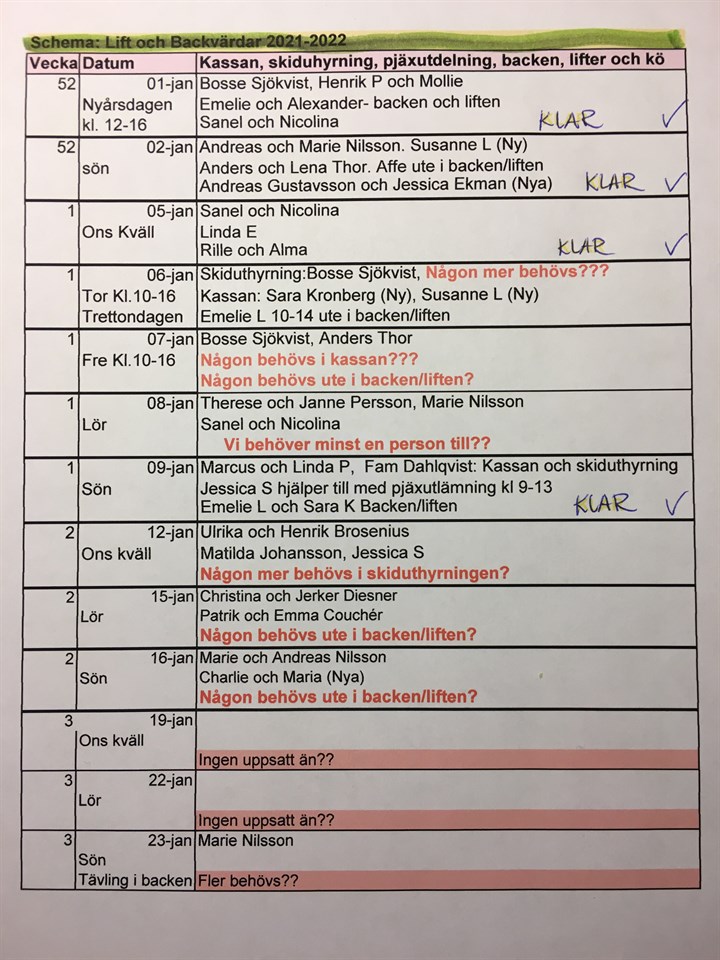 Schema: Lift och Backvärdar 2021-2022
Vecka Datum Kassan, skiduhyrning, pjäxutdelning, backen, lifter och kö
52 01-jan Bosse Sjökvist, Henrik P och Mollie
Nyårsdagen Emelie och Alexander- backen och liften
kl. 12-16 Sanel och Nicolina KLAR ✓
52 02-jan Andreas och Marie Nilsson. Susanne L (Ny)
sön Anders och Lena Thor. Affe ute i backen/liften
Andreas Gustavsson och Jessica Ekman (Nya) KLAR ✓
1 05-jan Sanel och Nicolina
Ons Kväll Linda E
Rille och Alma KLAR ✓
1 06-jan Skiduthyrning:Bosse Sjökvist, Någon mer behövs???
Tor Kl.10-16 Kassan: Sara Kronberg (Ny), Susanne L (Ny)
Trettondagen Emelie L 10-14 ute i backen/liften
1 07-jan Bosse Sjökvist, Anders Thor
Fre Kl.10-16 Någon behövs i kassan???
Någon behövs ute i backen/liften?
1 08-jan Therese och Janne Persson, Marie Nilsson
Lör Sanel och Nicolina
Vi behöver minst en person till??
1 09-jan Marcus och Linda P, Fam Dahlqvist: Kassan och skiduthyrning
Sön Jessica S hjälper till med pjäxutlämning kl 9-13
Emelie L och Sara K Backen/liften KLAR ✓
2 12-jan Ulrika och Henrik Brosenius
Ons kväll Matilda Johansson, Jessica S
Någon mer behövs i skiduthyrningen?
2 15-jan Christina och Jerker Diesner
Lör Patrik och Emma Couchér
Någon behövs ute i backen/liften?
2 16-jan Marie och Andreas Nilsson
Sön Charlie och Maria (Nya)
Någon behövs ute i backen/liften?
3 19-jan
Ons kväll
Ingen uppsatt än??
3 22-jan
Lör
Ingen uppsatt än??
3 23-jan Marie Nilsson
Sön
Tävling i backen Fler behövs??